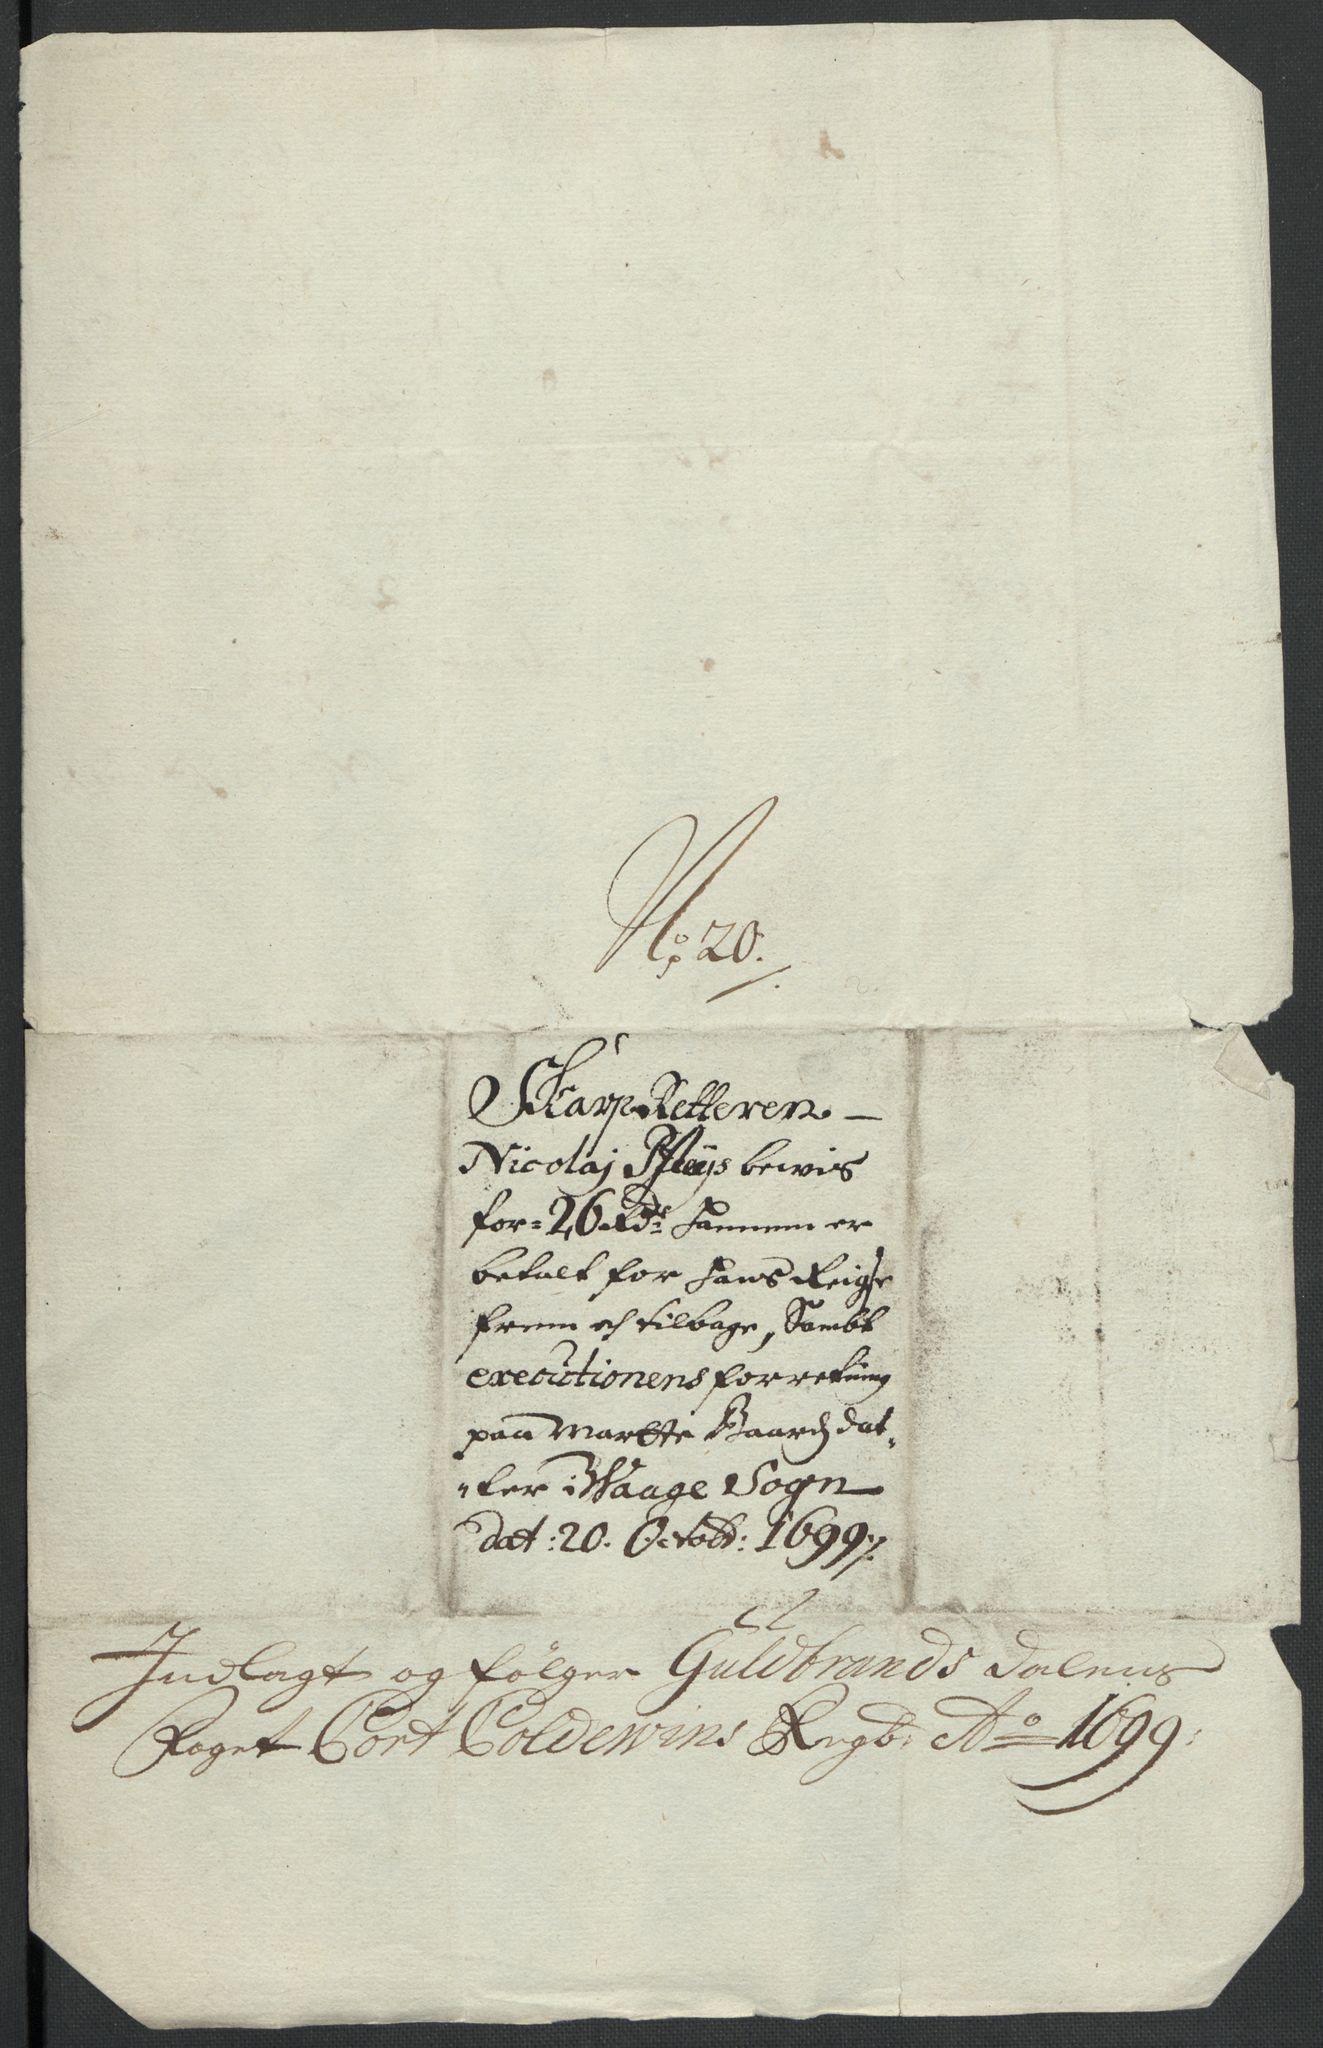 No: 20.
SkarpRetteren
Nicolaj bewis
for 26 Rdr hannem er
betalt for hans Reigse
frem och tilbage, Sambt
executionens forretning
paa Marthe Baards dat-
ter i Waage Sogn
dat: 20. Octobr: 1699
Indlagt og følger Guldbrands dalens
Foget Cort Coldewins Regb: Ao 1699: